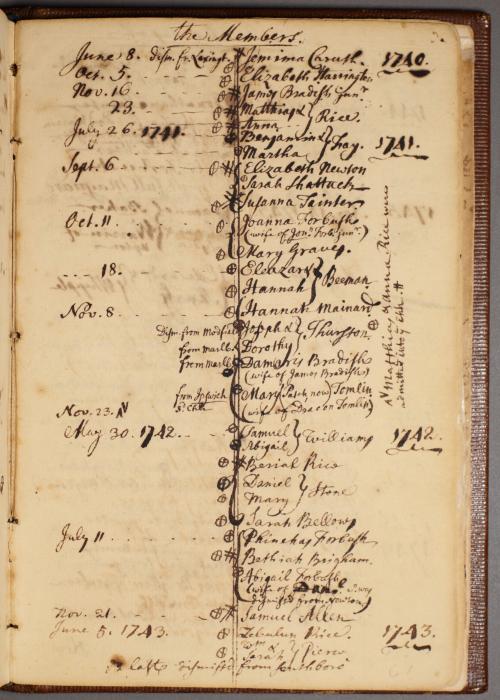 the Members.
June 8. dism. fr. Lexingt. # Jemima Caruth. 1740.
Oct. 5. Elizabeth Harrington
Nov. 16 # James Bradish Junr.
23. # Matthias & } Rice.
# Anna
July 26. 1741. Benjamin & } Fay. 1741.
Martha
Sept. 6 # Elizabeth Newton
Sarah Shattuck
Susanna Tainter
Oct. 11 Joanna Forbush
(wife of Jonn. Forb. Junr.)
Mary Graves.
18. Eleazar & } Beeman
Hannah
Nov. 8 Hannah Mainard
Dism. from Medfield Joseph & } Thurston.
from Marlb. Dorothy
from Marlb. Damaris Bradish
(wife of James Bradish)
from Ipswich Mary now Tomlin
Nov. 23. (wife of Deacon Tomlin)
May 30. 1742. Samuel } Williams 1742.
Abigail
# Berial Rice
Daniel } Stone
Mary
Sarah Bellows
July 11 Phinehas Forbush
# Bethiah Brigham.
Abigail Forbush
(wife of
dismised from Newton)
Nov. 21. # Samuel Allen
June 5. 1743. Zebulun Rice. 1743.
Wm &
Sarah Pierce
last dismissed from
Matthias & Anna Rice were
admitted into ye Chh. #